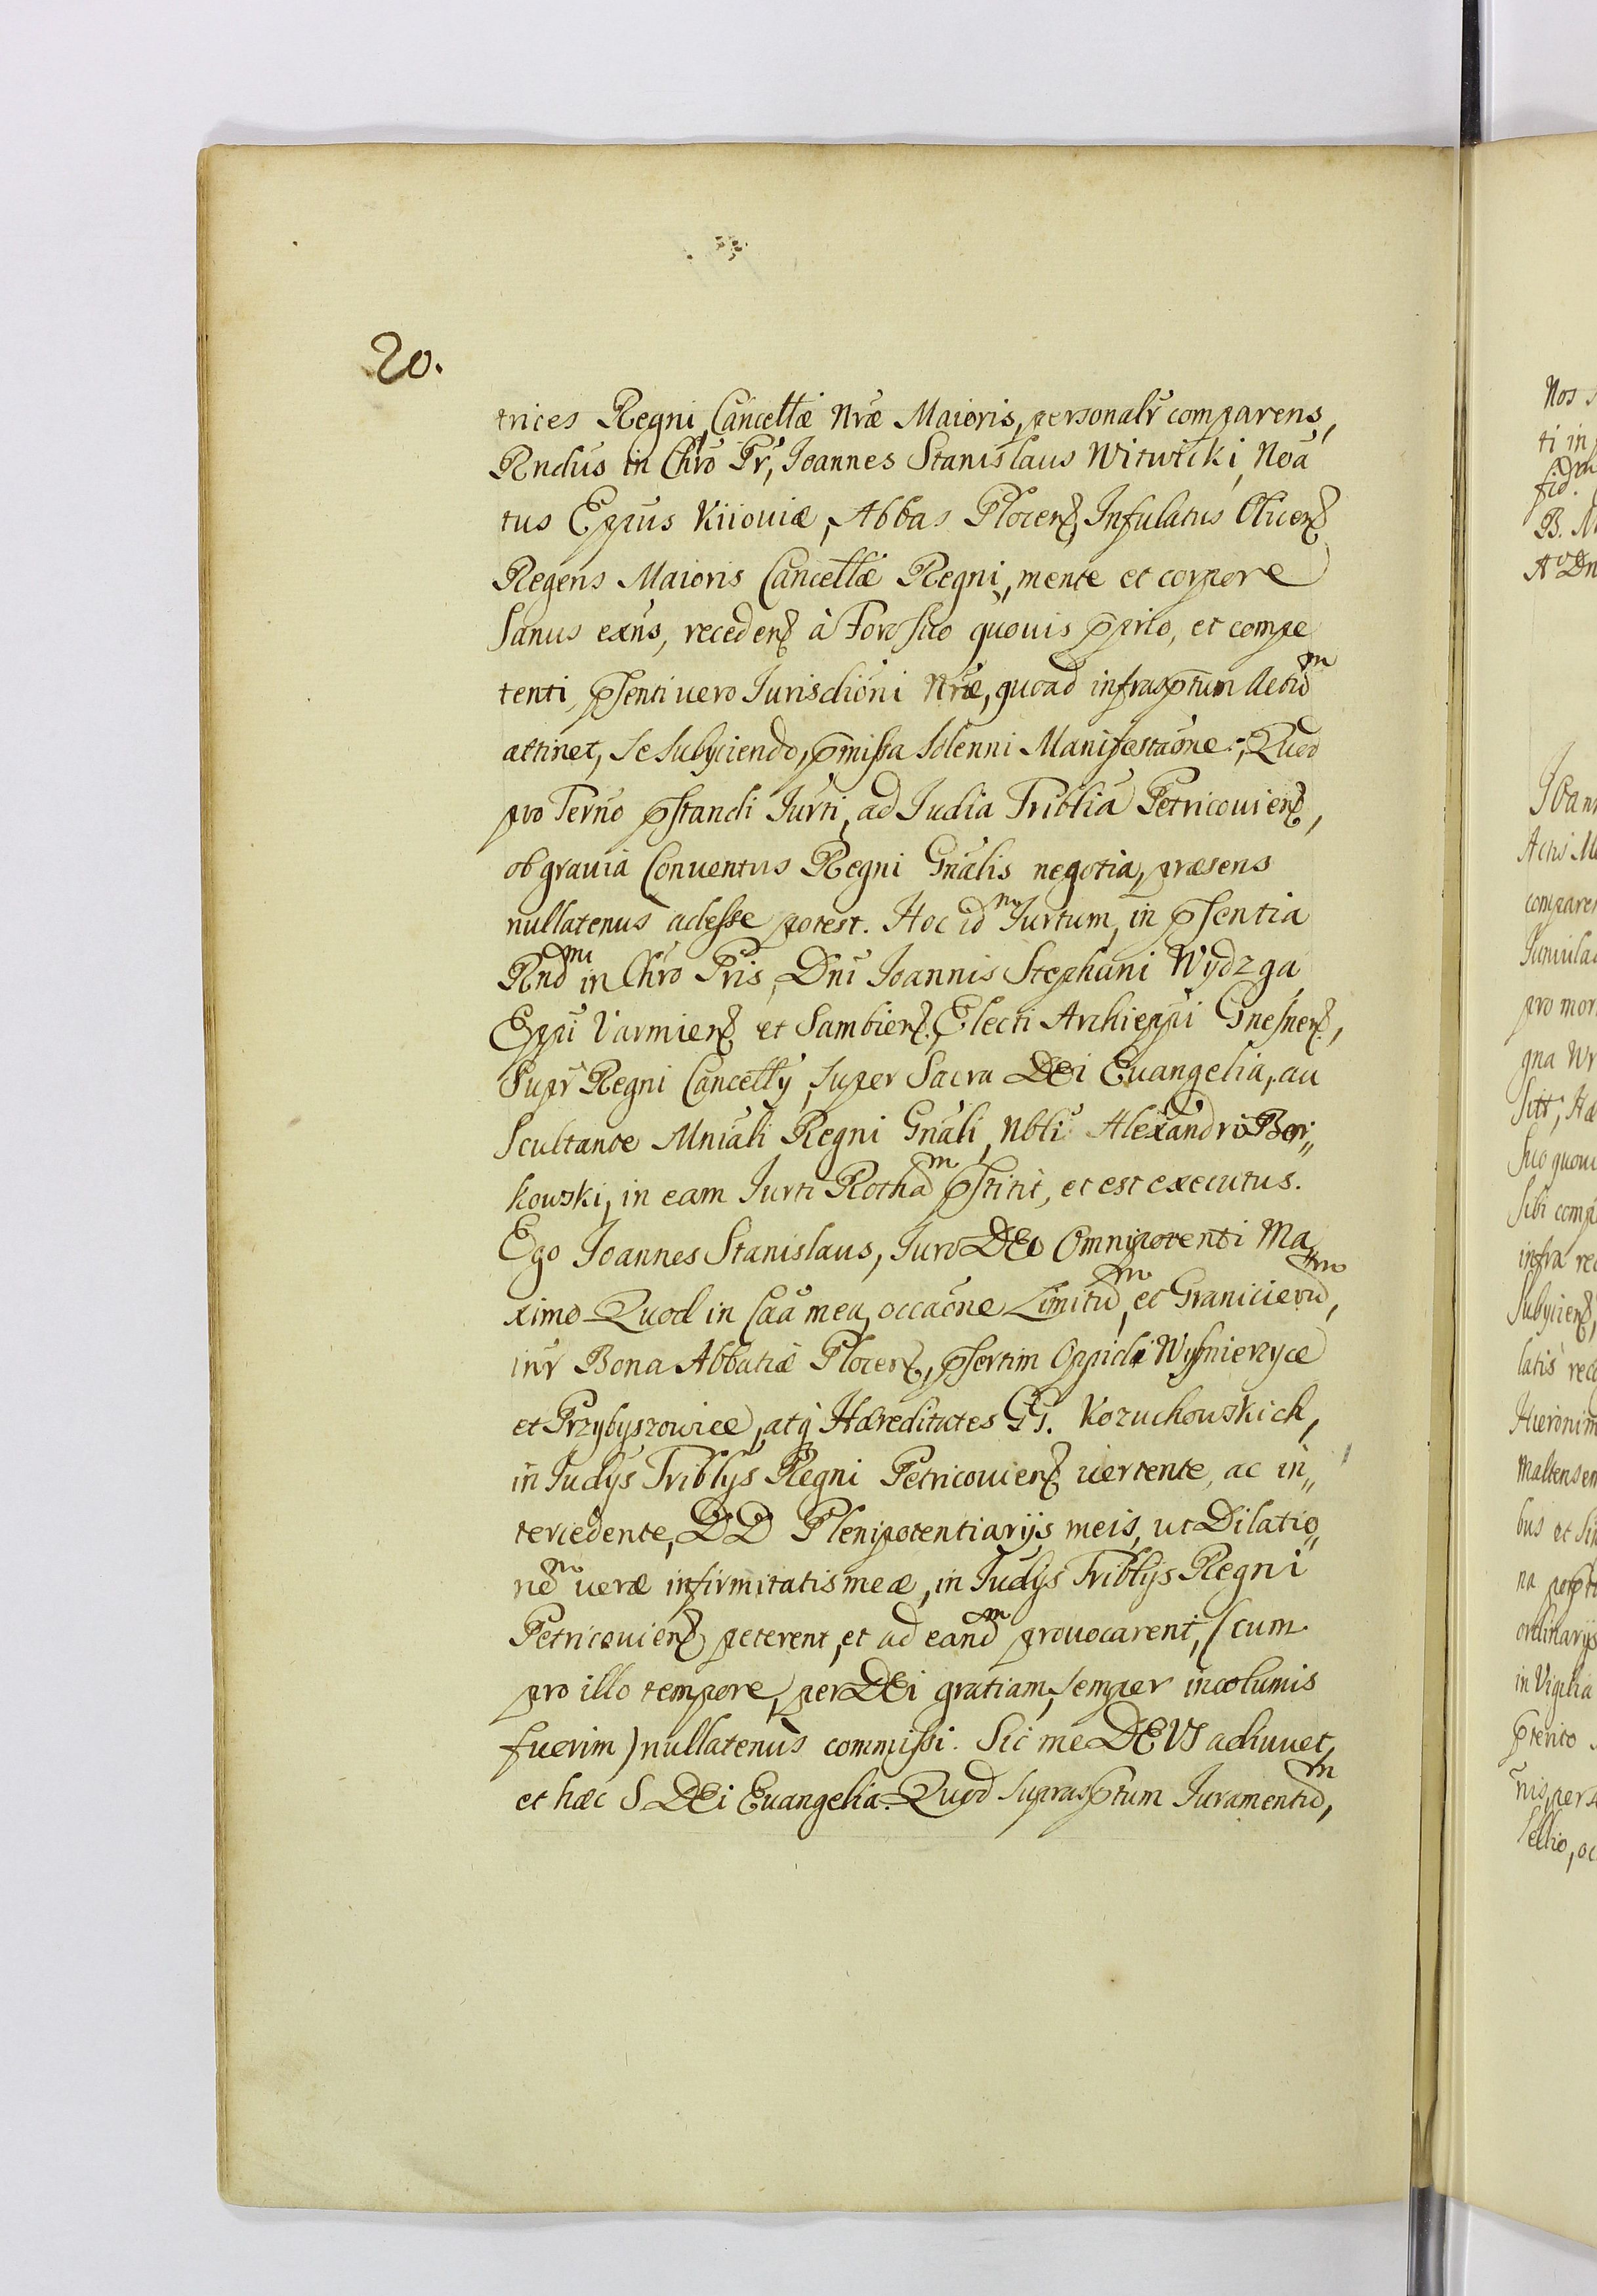 20.
trices Regni, Cancellæ Nræ Maioris, personalr comparens,
Rndus in Chro Pr, Joannes Stanislaus Witwicki, Noa
tus Eppus Kiiouiæ, Abbas Plocens, Infulatus Oliuens
Regens Maioris Cancellæ Regni, mente et corpore
Sanus exns, recedens à Foro suo quouis pprio, et compe
tenti, pnsenti uero Jurisdioni Nræ, quoad infrasptum Actum
attinet, se subyciendo, pmissa solenni Manifestaone, Quod
pro Terno pstandi Jurti, ad Judia Triblia Petricouiens,
ob grauia Conuentus Regni Gnalis negotia, præsens
nullatenus adesse potest. Hoc idm Jurtum, in psentia
Rndmi in Chro Pris, Dni Joannis Stephani Wydzga
Eppi Varmiens et Sambiens, Electi Archieppi Gnesnens,
Supr Regni Cancelly, super Sacra DEi Euangelia, au
scultante Mniali Regni Gnali, Nbli Alexandro Bor„
kowski, in eam Jurti Rotham pstitit, et est executus.
Ego Joannes Stanislaus, Juro DEo Omnipotenti Ma„
ximo Quod in Caa mea, occaone Limitum, et Granicierum,
intr Bona Abbatiæ Plocens, psertim Oppidi Wysmierzyce
et Przybyszowice, atq Hæreditates GG. Kozuchowskich,
in Judys Triblys Regni Petricouiens uertente, ac in„
tercedente, DD Plenipotentiarijs meis, ut Dilatio„
nem ueræ infirmitatis meæ, in Judys Triblijs Regni
Petricouiens peterent, et ad eandm prouocarent, (cum
pro illo tempore, per DEi gratiam, semper incolumis
fuerim) nullatenus commissi. Sic me DEUS adiuuet,
et hæc S DEi Euangelia. Quod suprasptum Juramentum,